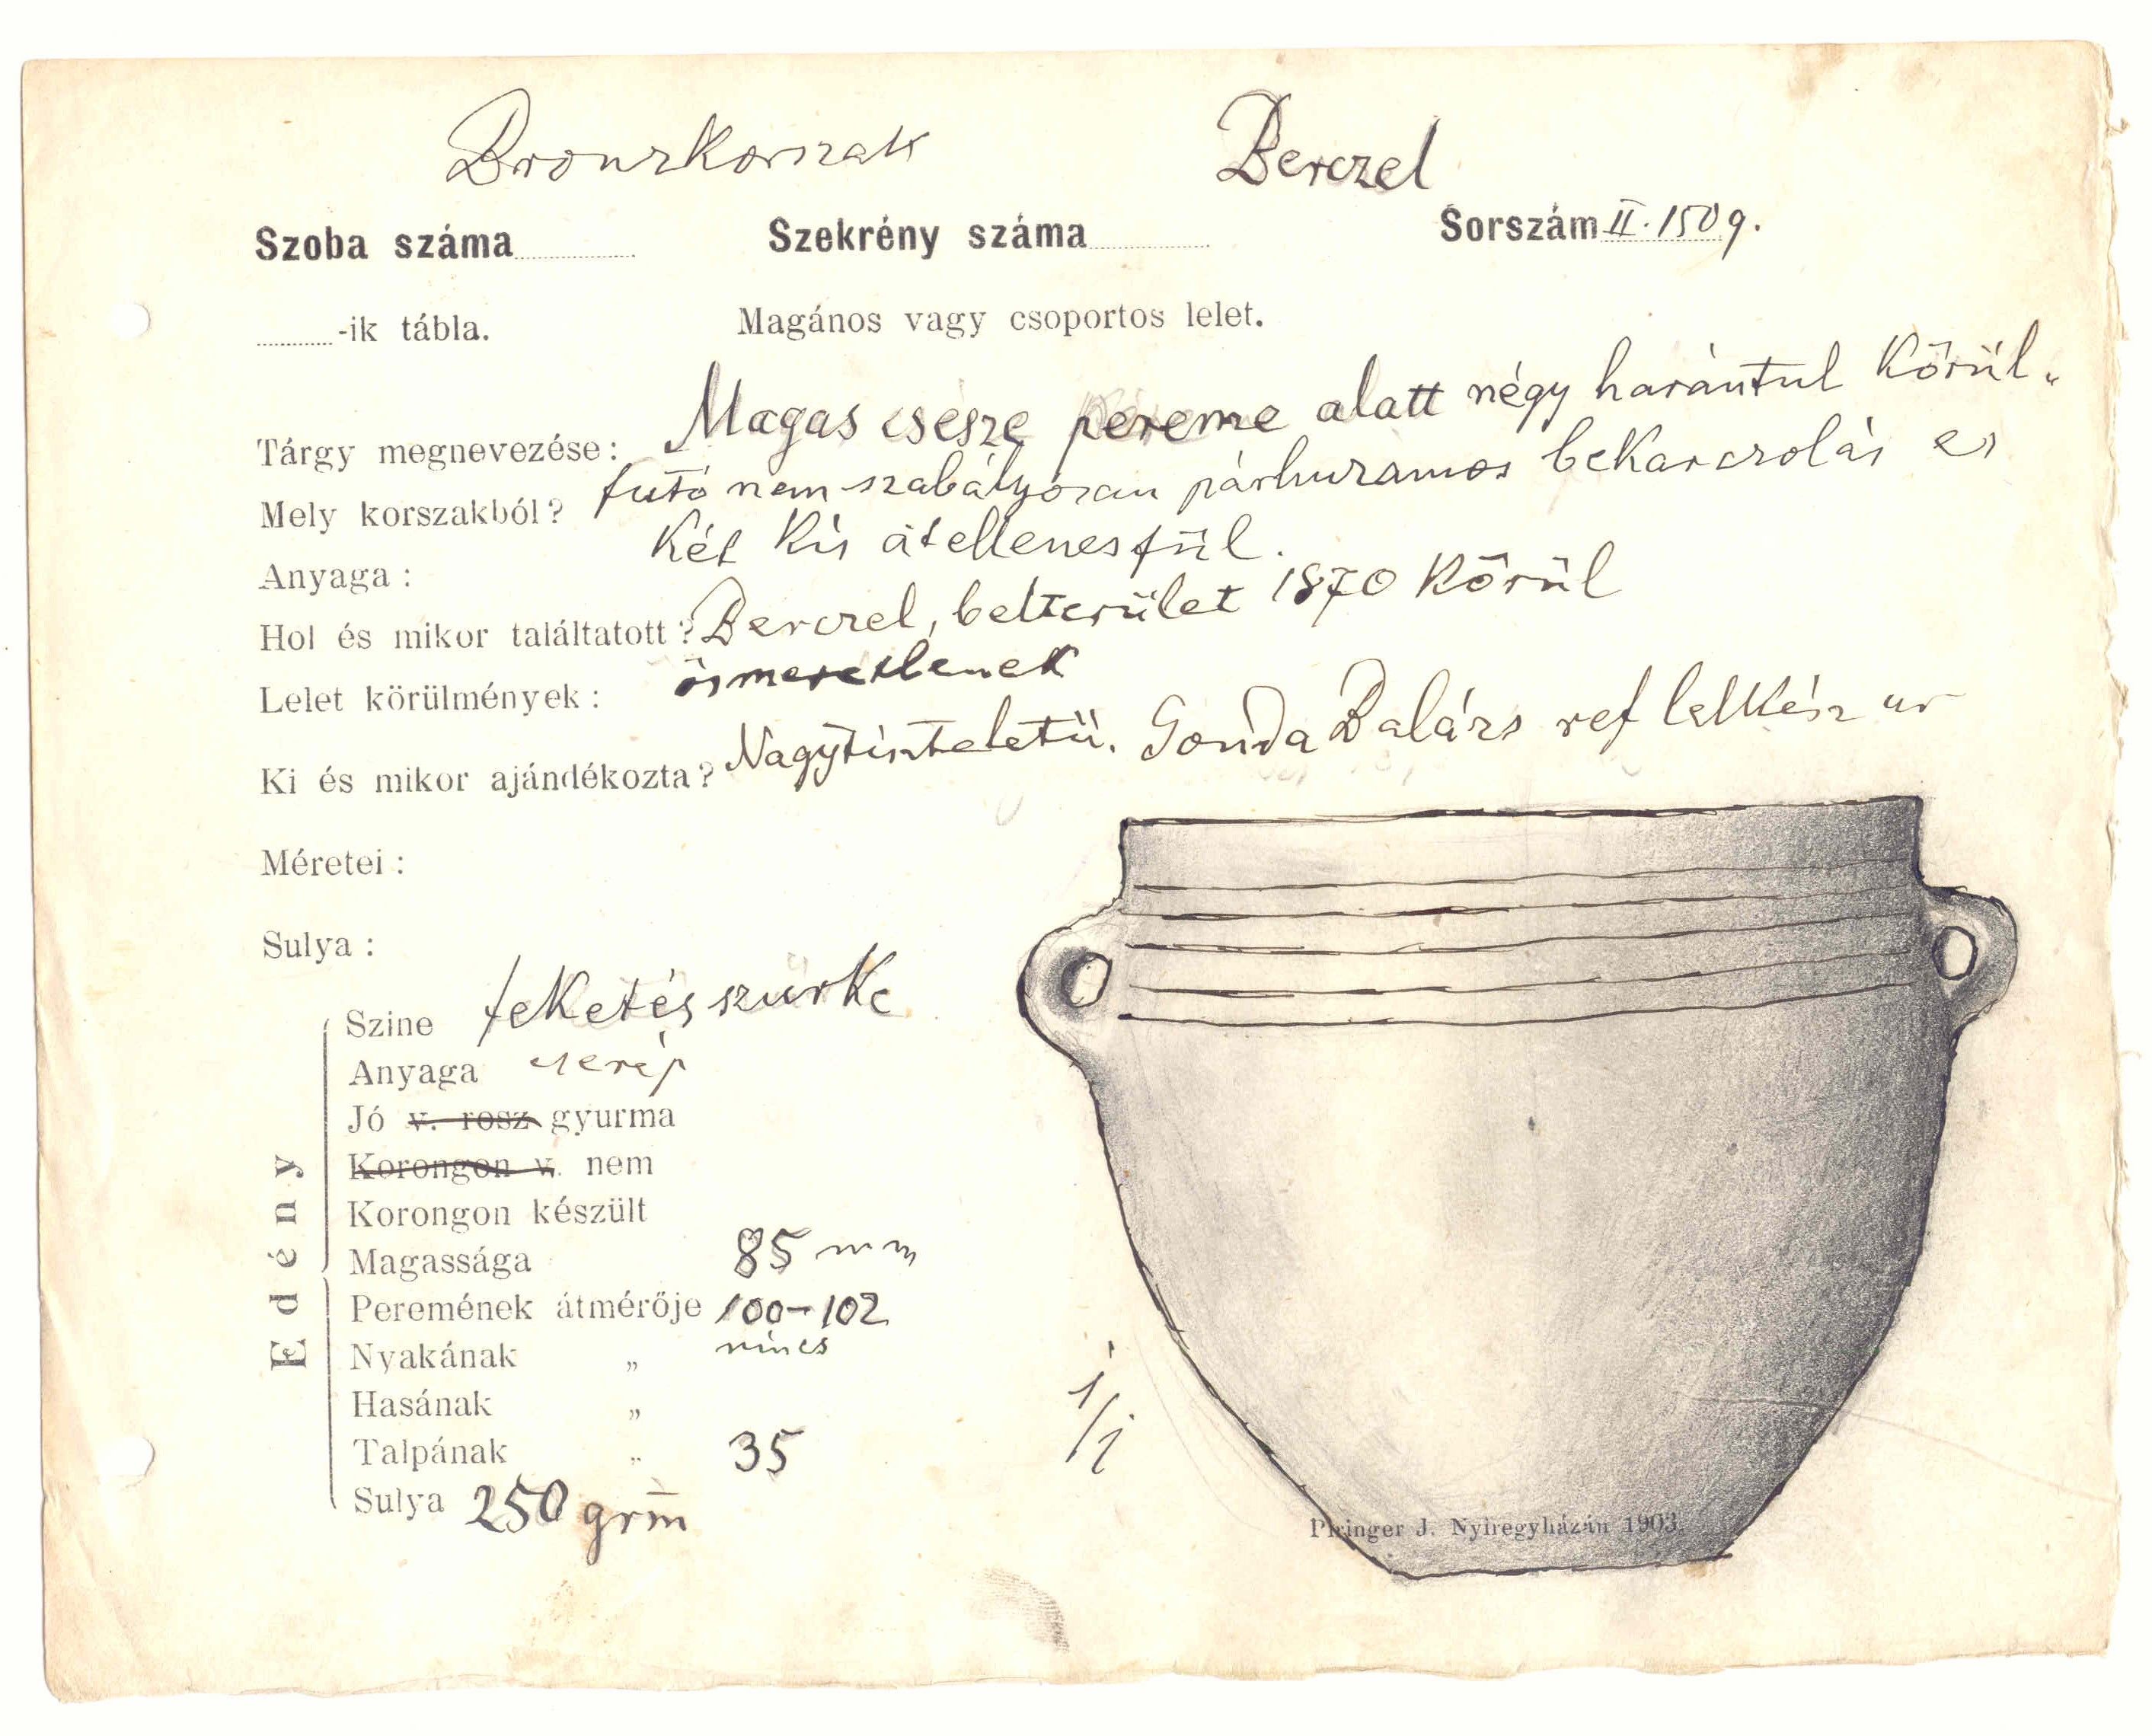 Bronzkorszak Berczel
Szoba száma Szekrény száma Sorszám II. 1509.
-ik tábla. Magános vagy csoportos lelet.
Tárgy megnevezése: Magas csésze pereme alatt négy harántul körül-
Mely korszakból? futó nem szabályozan párhuzamos bekarczolás es
Anyaga: Két kis átellenes fül.
Hol és mikor találtatott? Berczel, belterület 1870 Körül
Lelet körülmények: ismeretlenek
Ki és mikor ajándékozta? Nagytiszteletü. Gonda Balázs ref lelkész ur
Méretei:
Sulya:
Edény
Szine feketés szürke
Anyaga cserép
Jó v. rosz gyurma
Korongon v. nem
Korongon készült
Magassága 85 mm
Peremének átmérője 100-102
Nyakának „ nincs
Hasának „
Talpának „ 35
Sulya 250 grm
1/1
Piringer J. Nyiregyházán 1903.